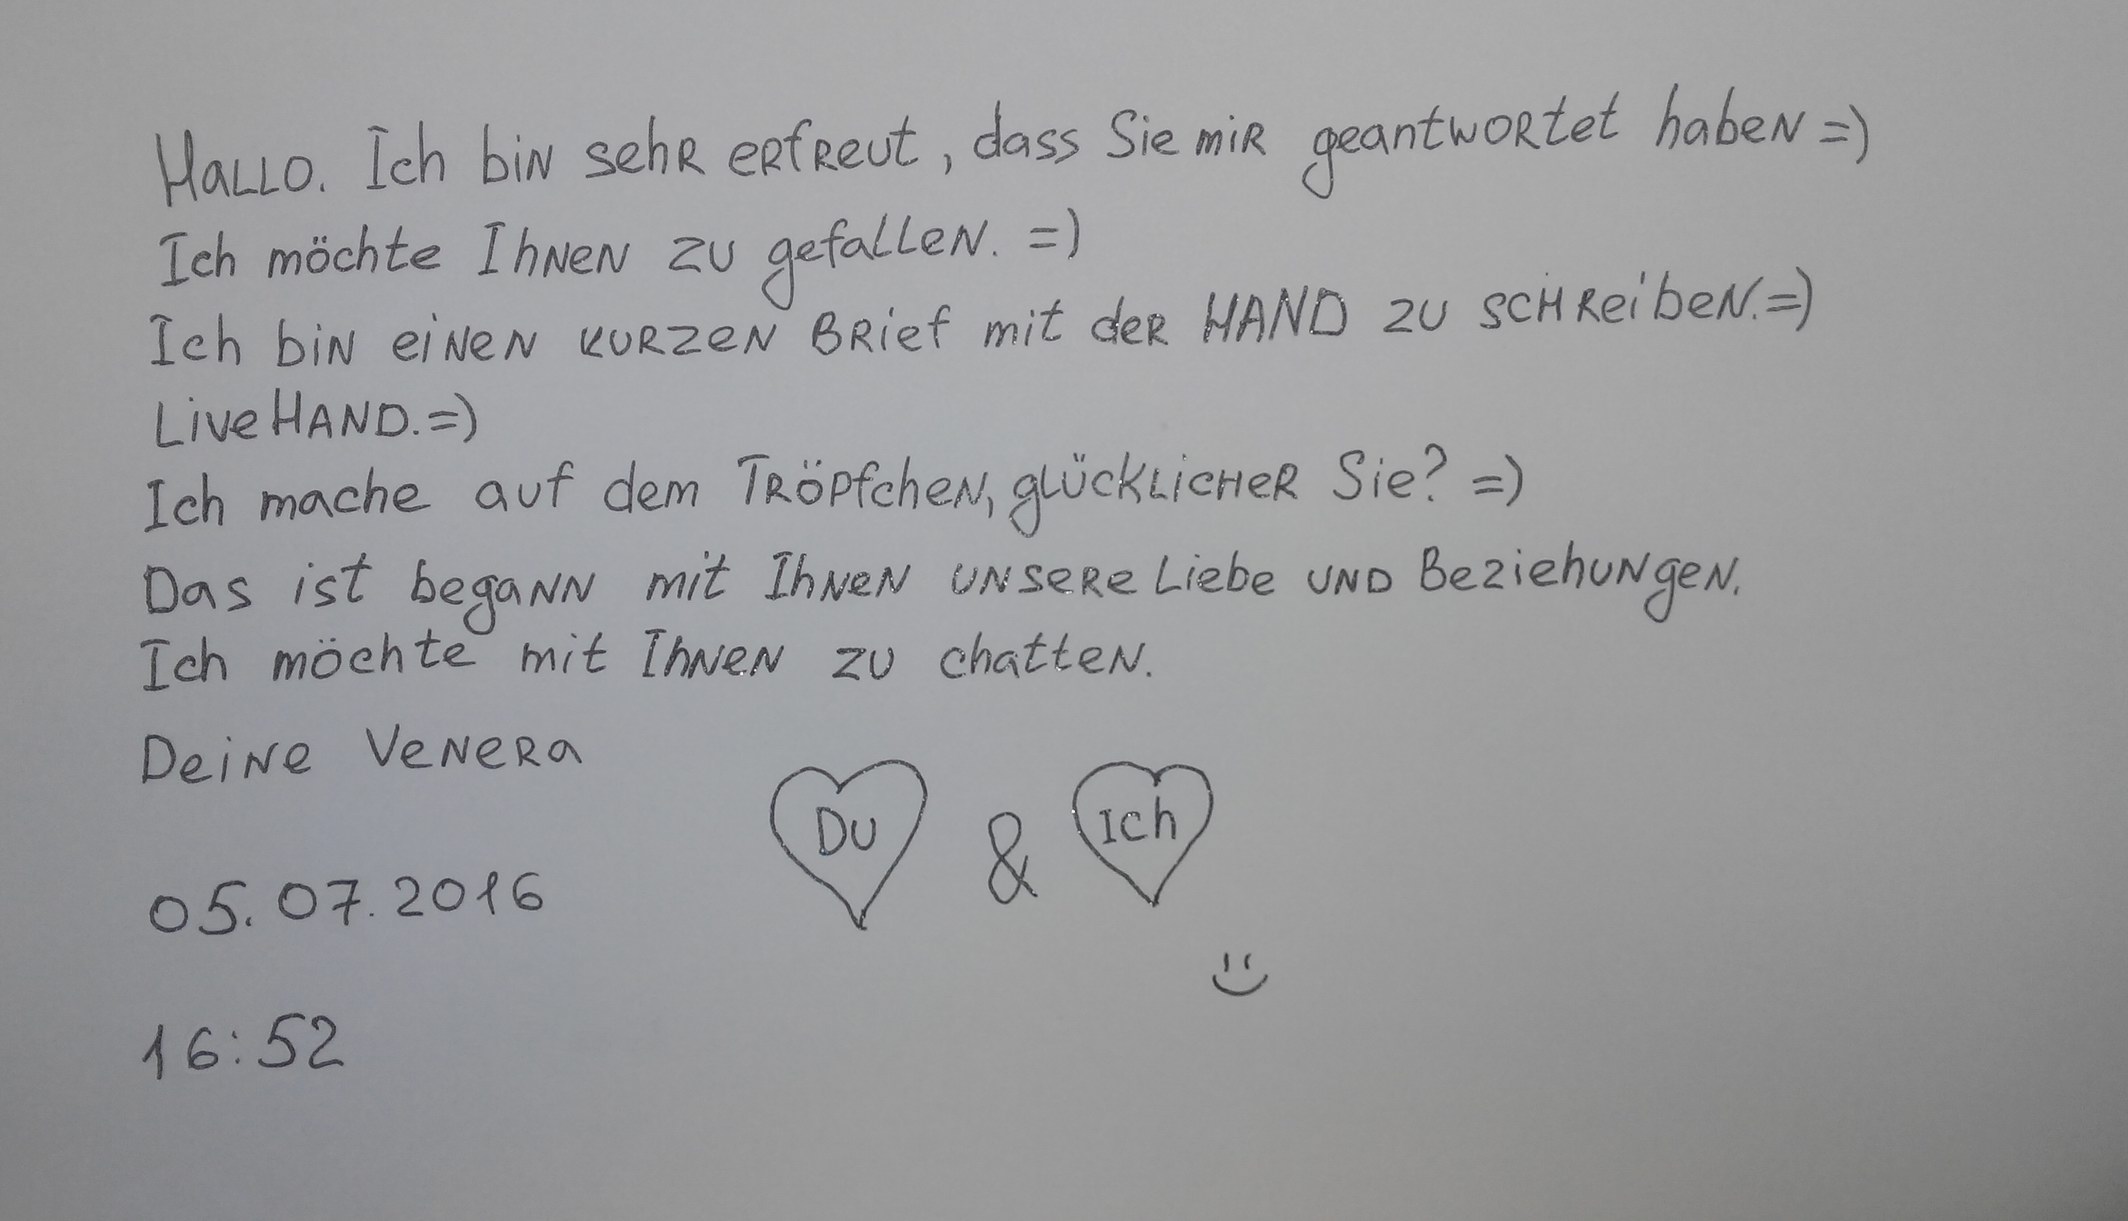 Hallo. Ich bin sehr erfreut, dass Sie mir geantwortet haben =)
Ich möchte Ihnen zu gefallen. =)
Ich bin einen kurzen Brief mit der HAND zu schreiben. =)
Live HAND. =)
Ich mache auf dem Tröpfchen, glücklicher Sie? =)
Das ist begann mit Ihnen unsere Liebe und Beziehungen.
Ich möchte mit Ihnen zu chatten.
Deine Venera
Du & Ich
05.07.2016
16:52